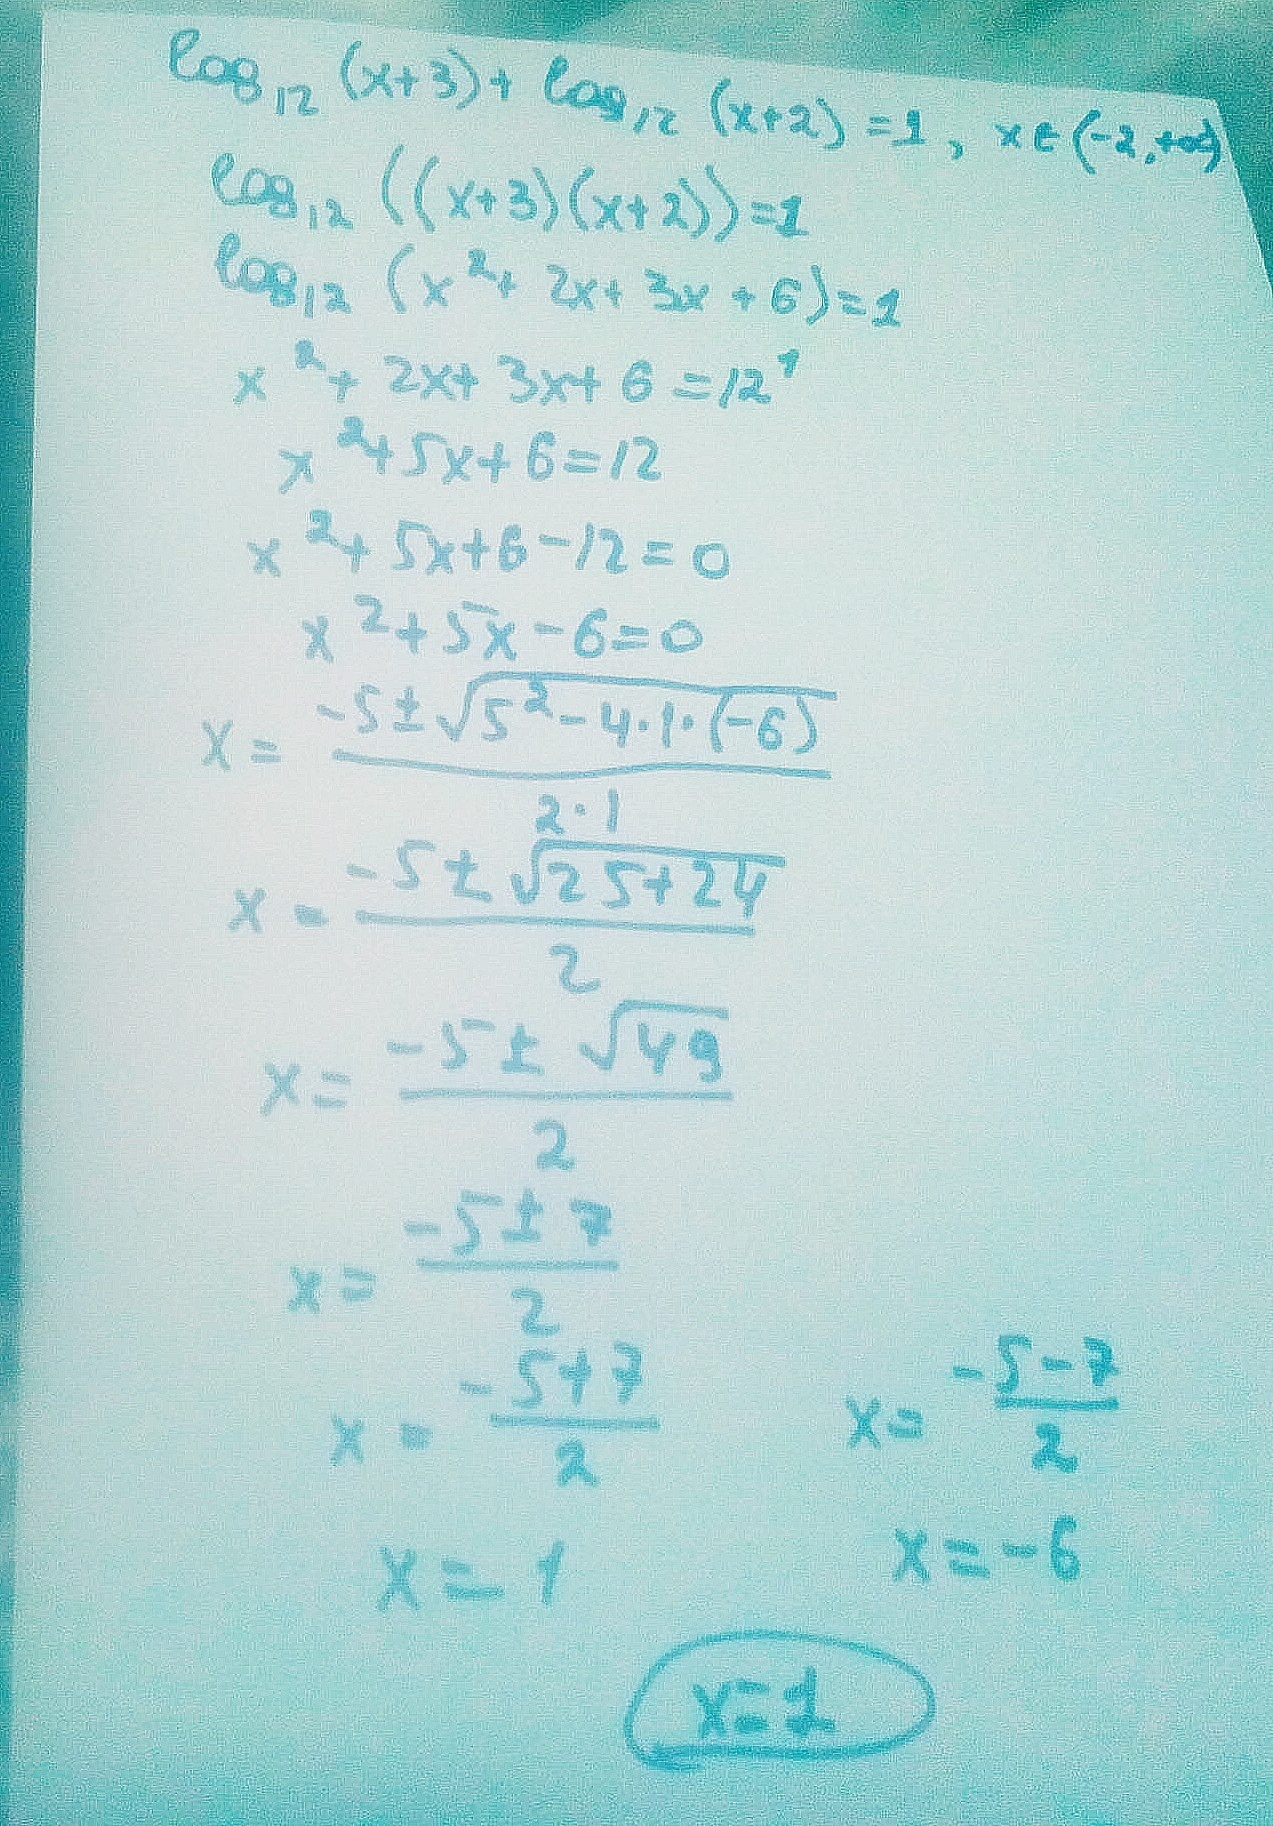 log₁₂ (x+3) + log₁₂ (x+2) = 1, x ∈ (-2, +∞)
log₁₂ ((x+3)(x+2)) = 1
log₁₂ (x² + 2x + 3x + 6) = 1
x² + 2x + 3x + 6 = 12¹
x² + 5x + 6 = 12
x² + 5x + 6 - 12 = 0
x² + 5x - 6 = 0
x = (-5 ± √(5² - 4·1·(-6))) / (2·1)
x = (-5 ± √(25 + 24)) / 2
x = (-5 ± √49) / 2
x = (-5 ± 7) / 2
x = (-5 + 7) / 2 x = (-5 - 7) / 2
x = 1 x = -6
x = 1